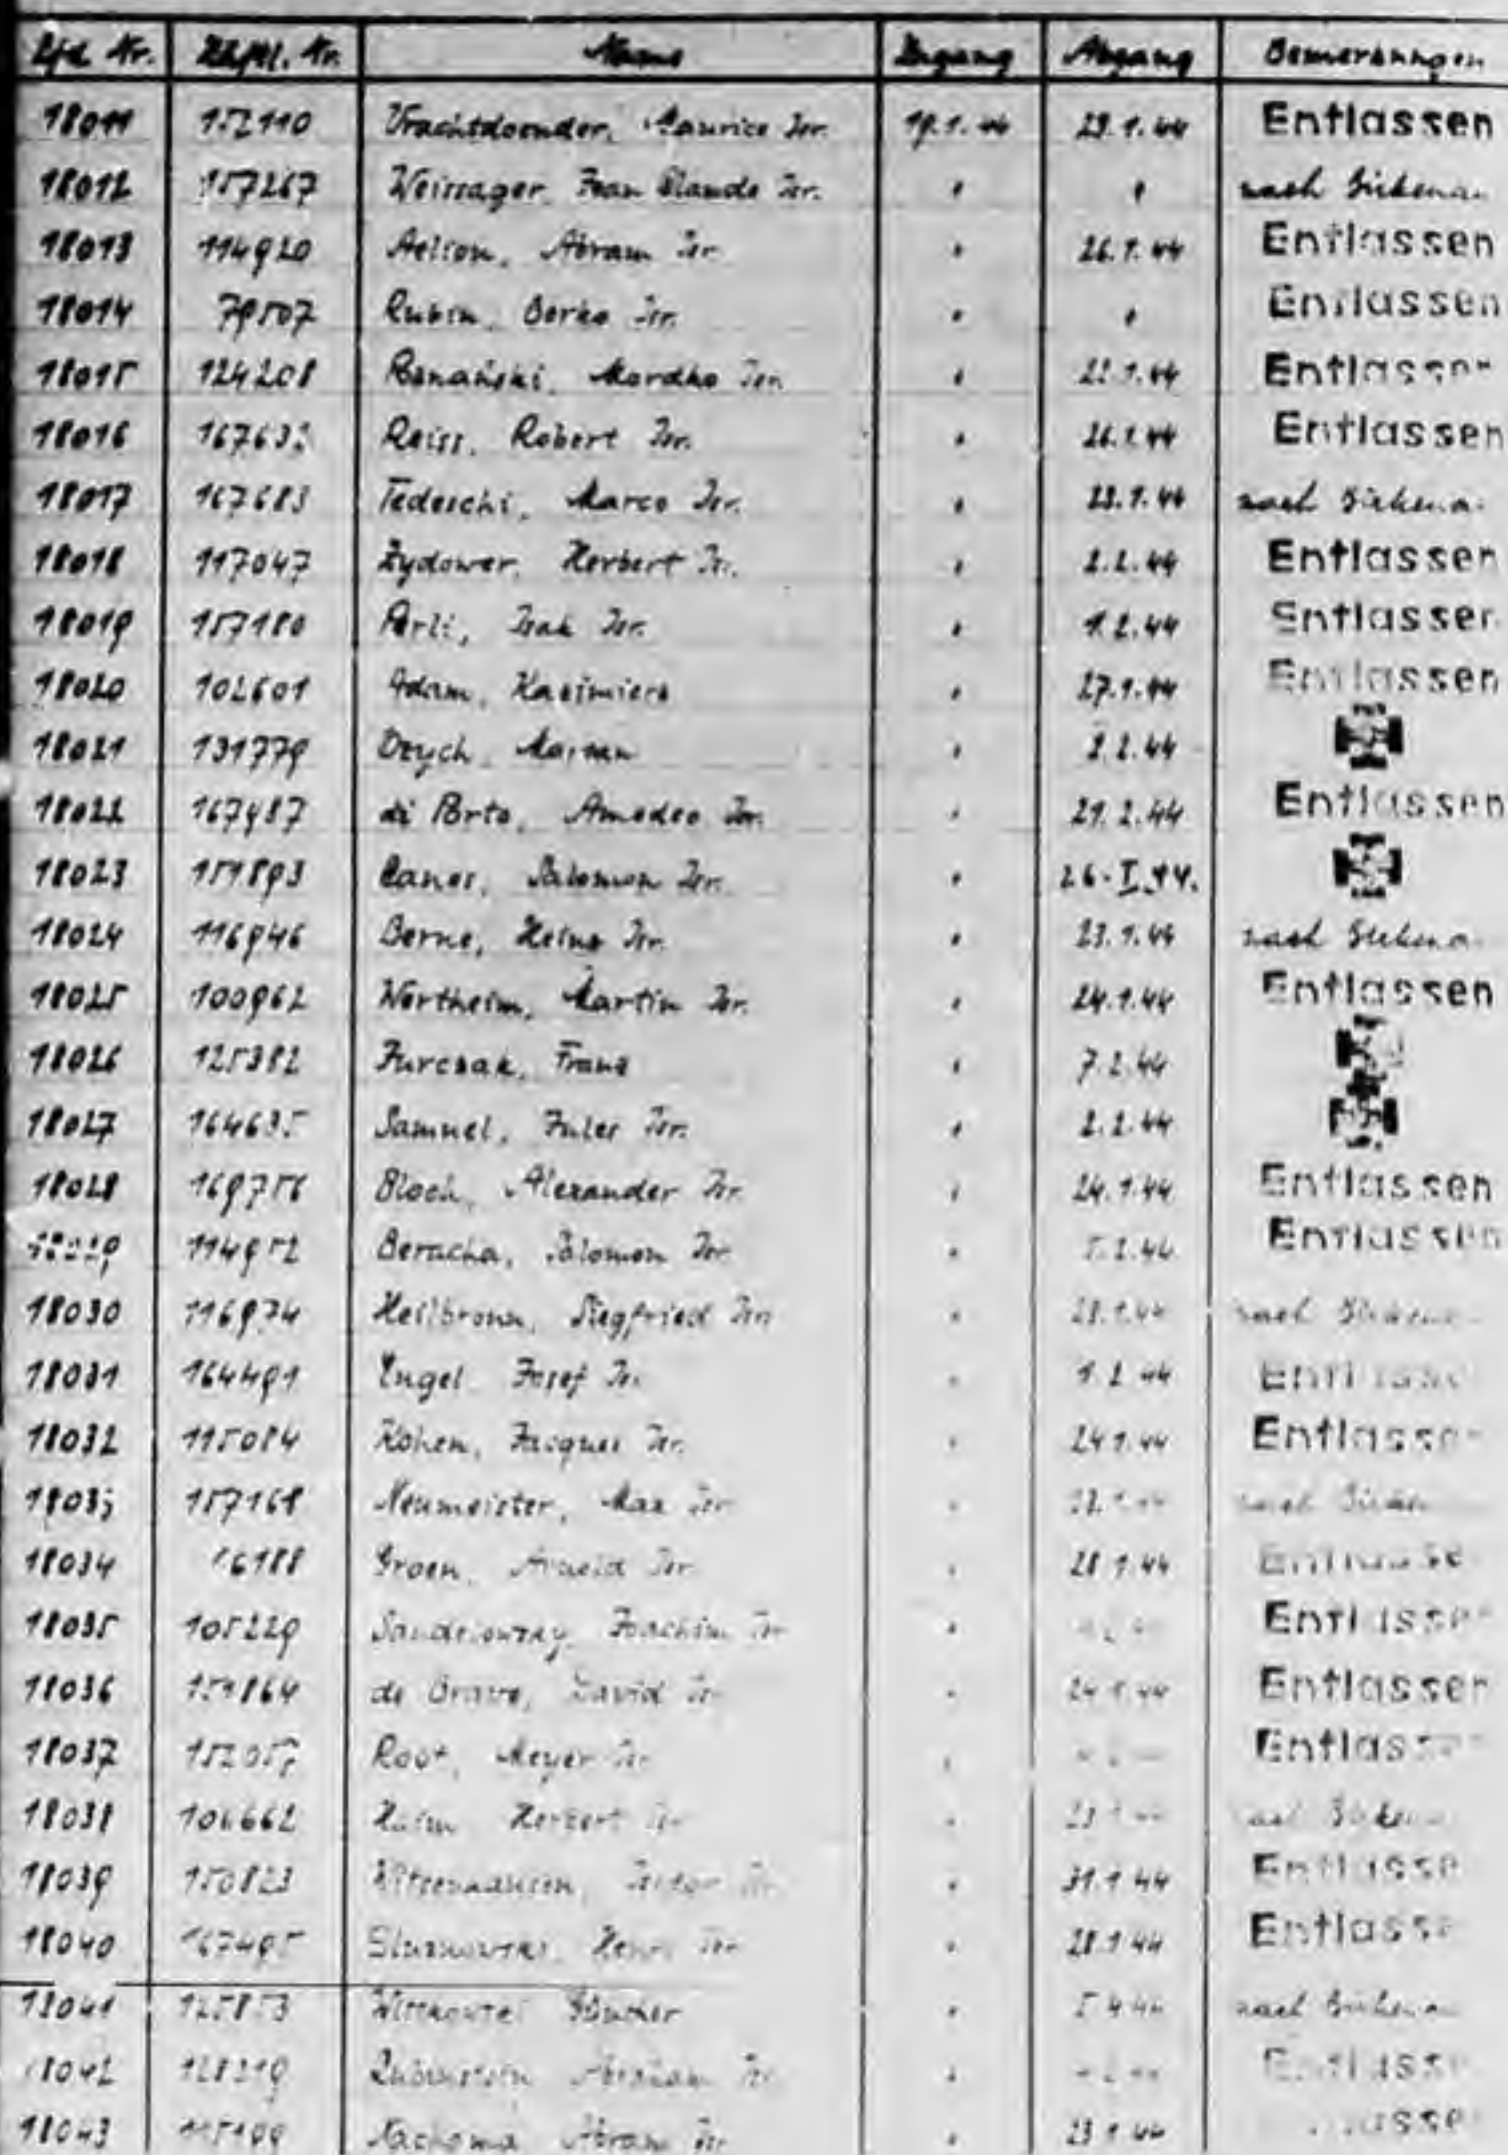 Lfd. Nr. Häftl. Nr. Name Zugang Abgang Bemerkungen
18011 152110 Vrachtdoender, Maurice Isr. 19.1.44 29.1.44 Entlassen
18012 157267 Weissager, Jean Claude Isr. " " nach Birkenau
18013 114920 Aelion, Abram Isr. " 26.1.44 Entlassen
18014 79507 Rubin, Berko Isr. " " Entlassen
18015 124208 Mordko Isr. " 22.1.44 Entlassen
18016 Reiss, Robert Isr. " 26.1.44 Entlassen
18017 167683 Tedeschi, Marco Isr. " 23.1.44 nach Birkenau
18018 117047 Żydower, Herbert Isr. " 2.2.44 Entlassen
18019 157180 Perli, Isak Isr. " 1.2.44 Entlassen
18020 102601 Adam, Kazimierz " 27.1.44 Entlassen
18021 131779 Dzych, Marian " 2.2.44
18022 167487 di Porto, Amedeo Isr. " 21.2.44 Entlassen
18023 151893 Canes, Salomon Isr. " 26.I.44.
18024 116946 Berne, Heinz Isr. " 23.1.44 nach Birkenau
18025 100962 Wertheim, Martin Isr. " 24.1.44 Entlassen
18026 125382 Jurczak, Franz " 7.2.44
18027 164635 Samuel, Jules Isr. " 2.2.44
18028 169756 Bloch, Alexander Isr. " 24.1.44 Entlassen
114952 Beracha, Salomon Isr. " 5.2.44 Entlassen
18030 116974 Heilbronn, Siegfried Isr. " 23.1.44 nach Birkenau
18031 164491 Engel, Josef Isr. " 1.2.44 Entlassen
18032 115084 Kohen, Jacques Isr. " 24.1.44 Entlassen
18033 157168 Neumeister, Max Isr. " nach Birkenau
18034 Groen, Arnold Isr. " 28.1.44 Entlassen
18035 105229 Sandelowsky, Joachim Isr. " Entlassen
18036 151864 de Grave, David Isr. " 24.1.44 Entlassen
18037 152057 Root, Meyer Isr. " Entlassen
18038 106662 Herbert Isr. " nach Birkenau
18039 150823 Witzenhausen, Isr. " 31.1.44 Entlassen
18040 167495 Henri Isr. " 28.1.44 Entlassen
18041 125853 Wittkowski Günther " 5.4.44 nach Birkenau
18042 128219 Rubinstein Abraham Isr. " Entlassen
18043 Nachama Abram Isr. " 23.1.44